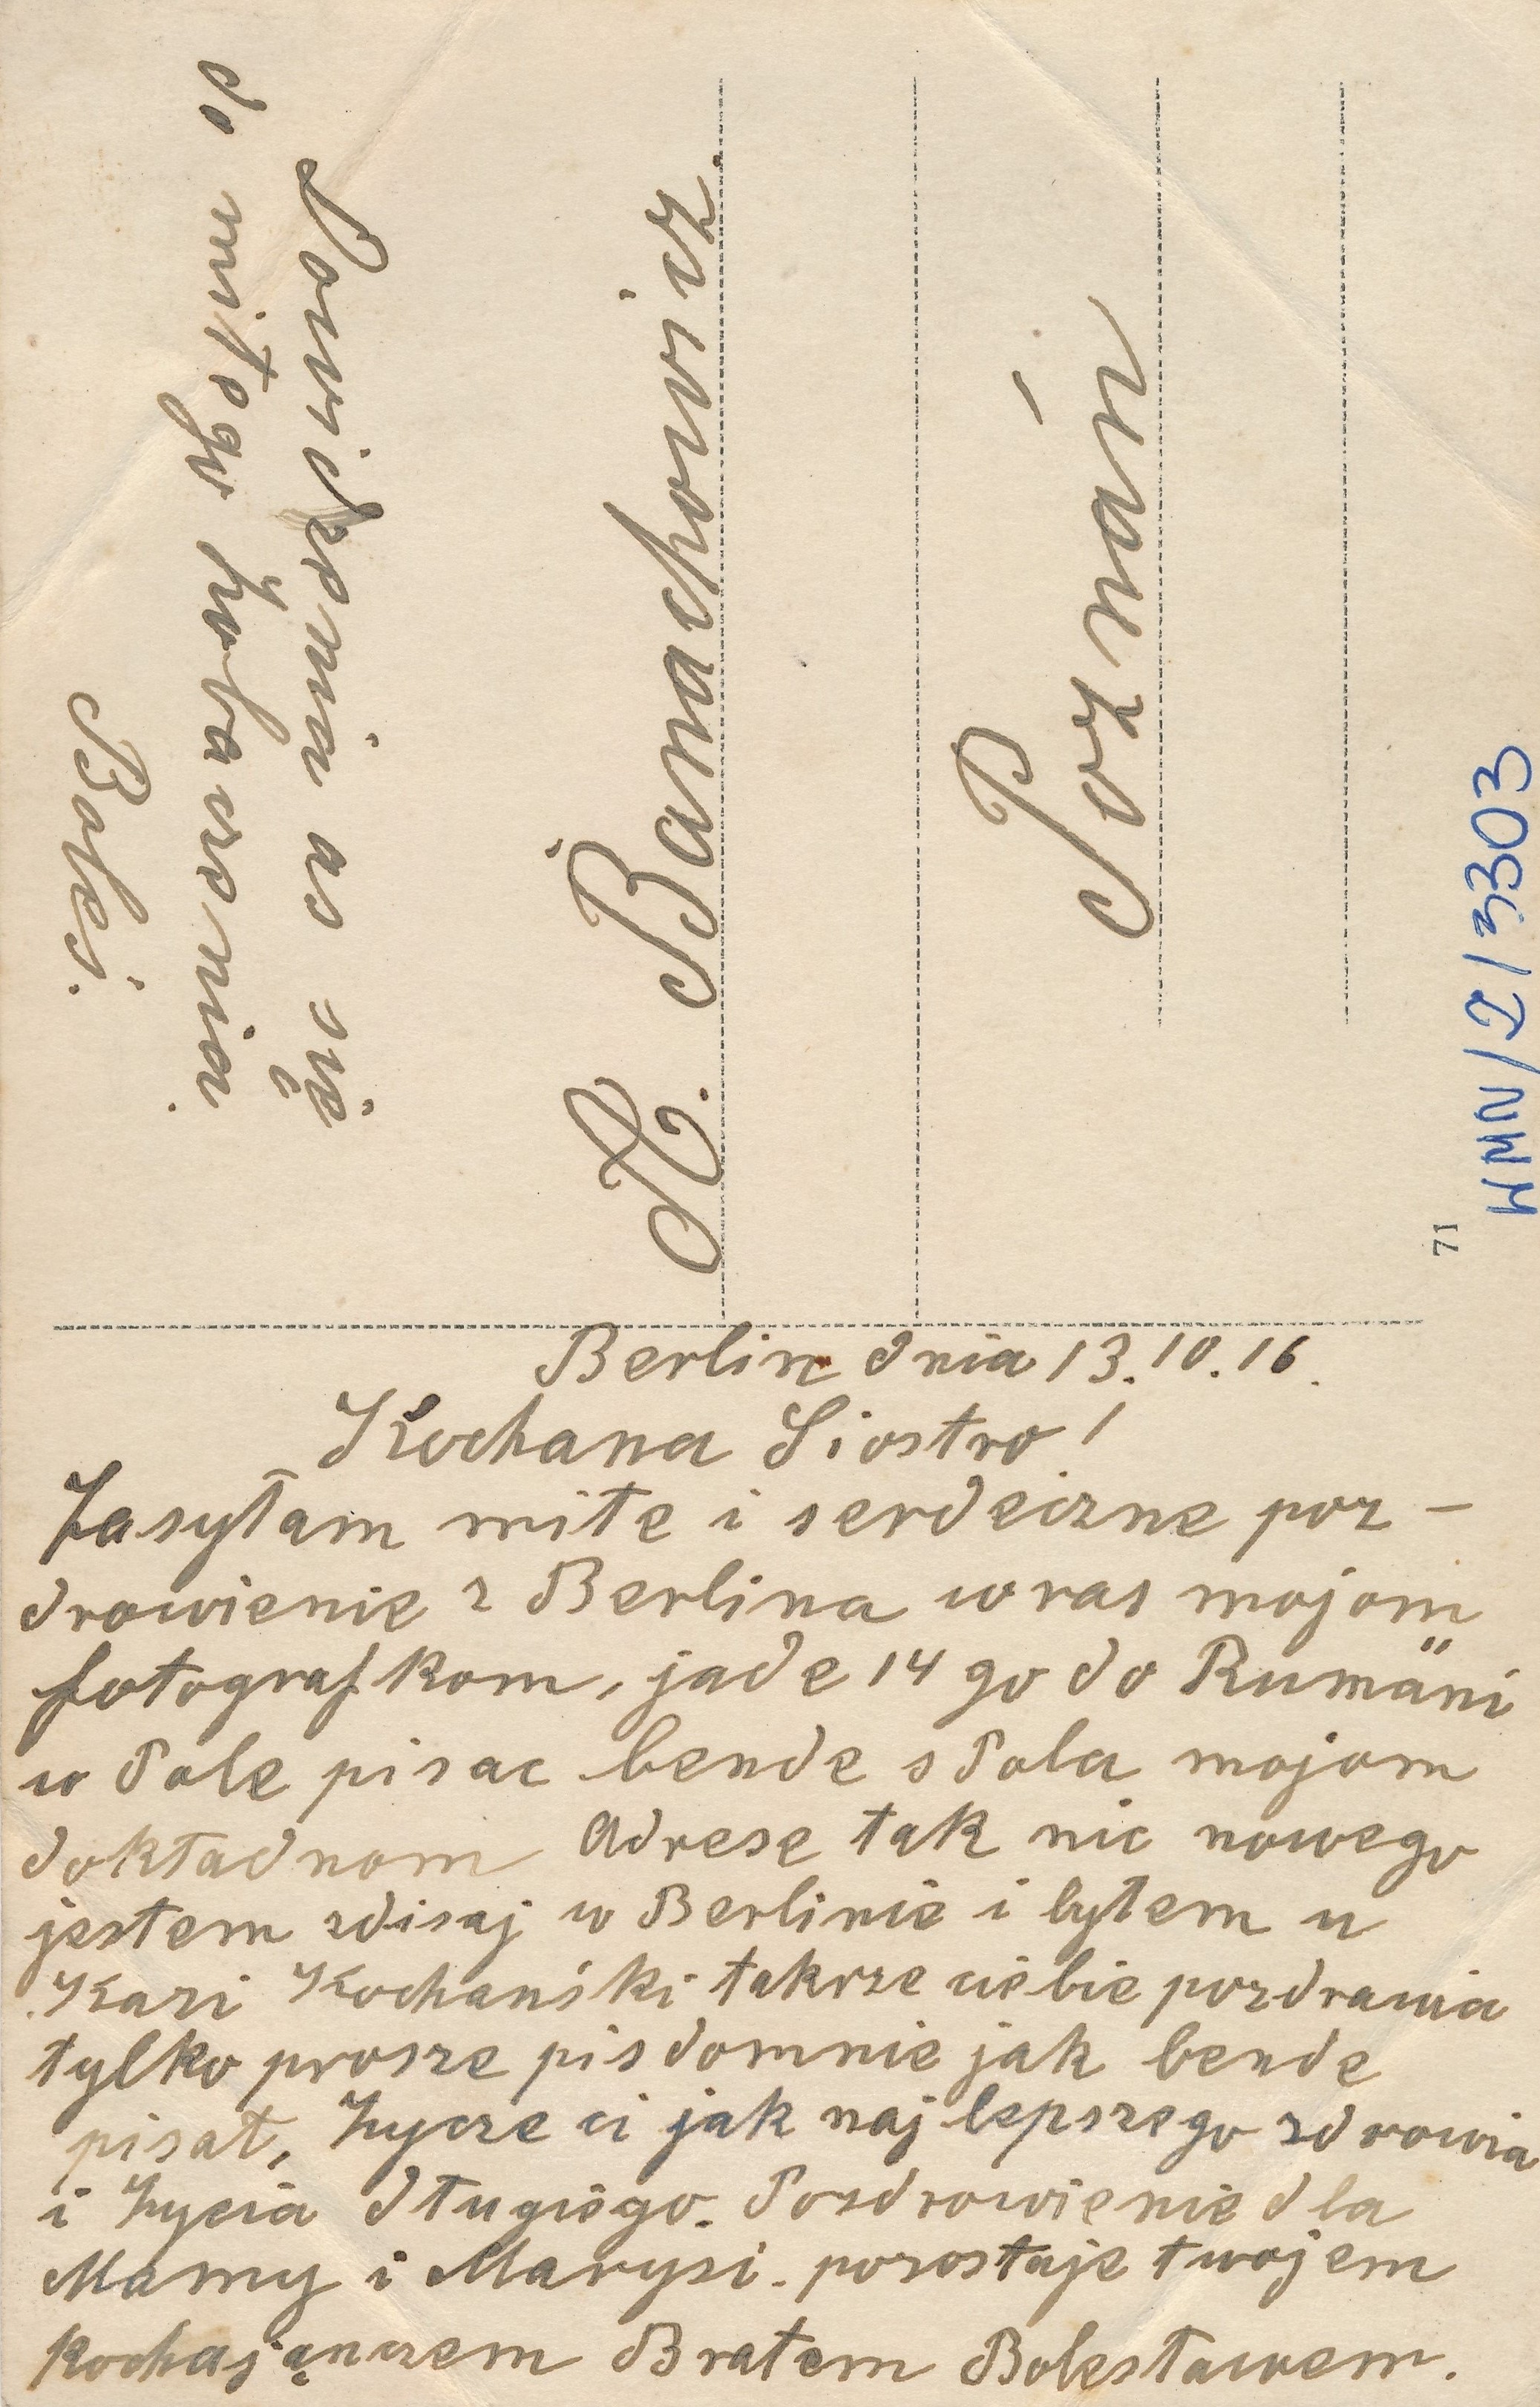 Berlin dnia 13.10.16.
Kochana Siostro!
Zasyłam miłe i serdeczne poz-
drowienie z Berlina wras mojom
fotografkom, jade 14 go do Rumäni
w Pole pisac bende s Pola mojom
dokładnom Adrese tak nic nowego
jestem zdisaj w Berlinie i bylem u
Kazi Kochański takrze ciebie pozdrawia
tylko prosze pis domnie jak bende
pisał, Zycze ci jak naj lepszego zdrowia
i Zycia długiego. Pozdrowienie dla
Mamy i Marysi. pozostaje twojem
Kochającnzem Bratem Bolesławem.
do miłego zobaczenia
Bolej.
A. Banachowicz.
Poznań
71
WMN/I/3303